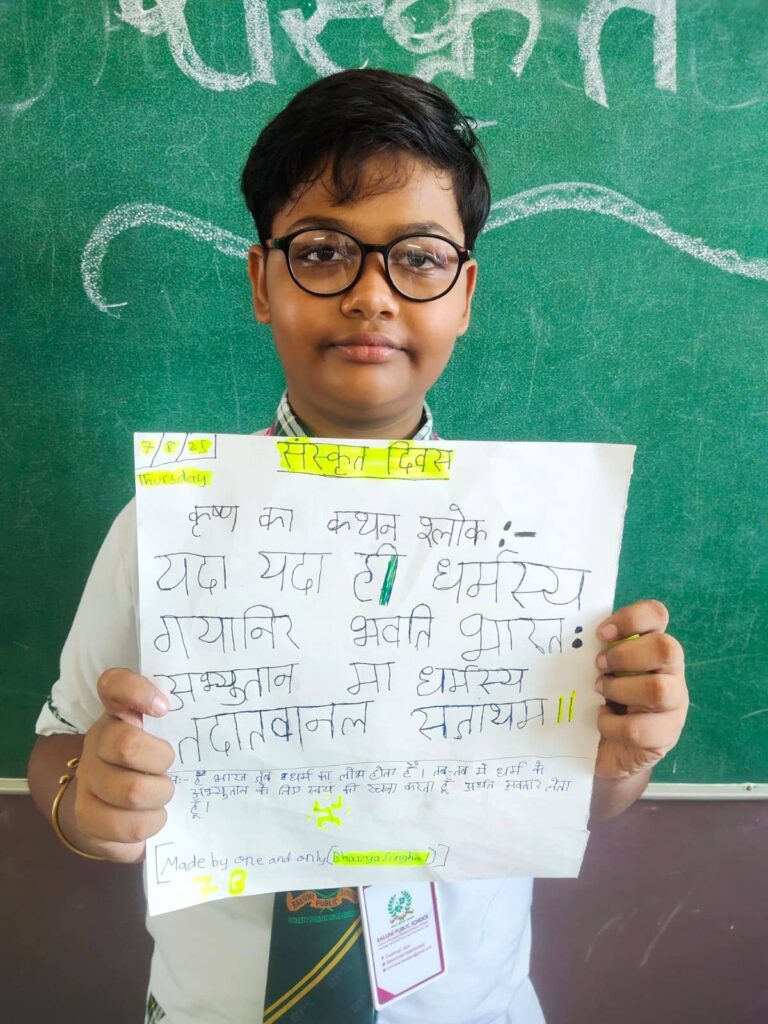 संस्कृत
7/8/25
Thursday
संस्कृत दिवस
कृष्ण का कथन श्लोक :-
यदा यदा ही धर्मस्य
गयानिर भवति भारत:
अभ्युतान मा धर्मस्य
तदातवानल सज़ाथम॥
भारत जब धर्म का लोभ होता है। तब-तब मे धर्म के
अभ्युतान के लिए स्वय की रचना करता हूँ अर्थात अवतार लेता
हूँ।
[Made by one and only (Bhavya Singhal)]
BALUNI PUBLIC SCHOOL
BALUNI PUBLIC SCHOOL